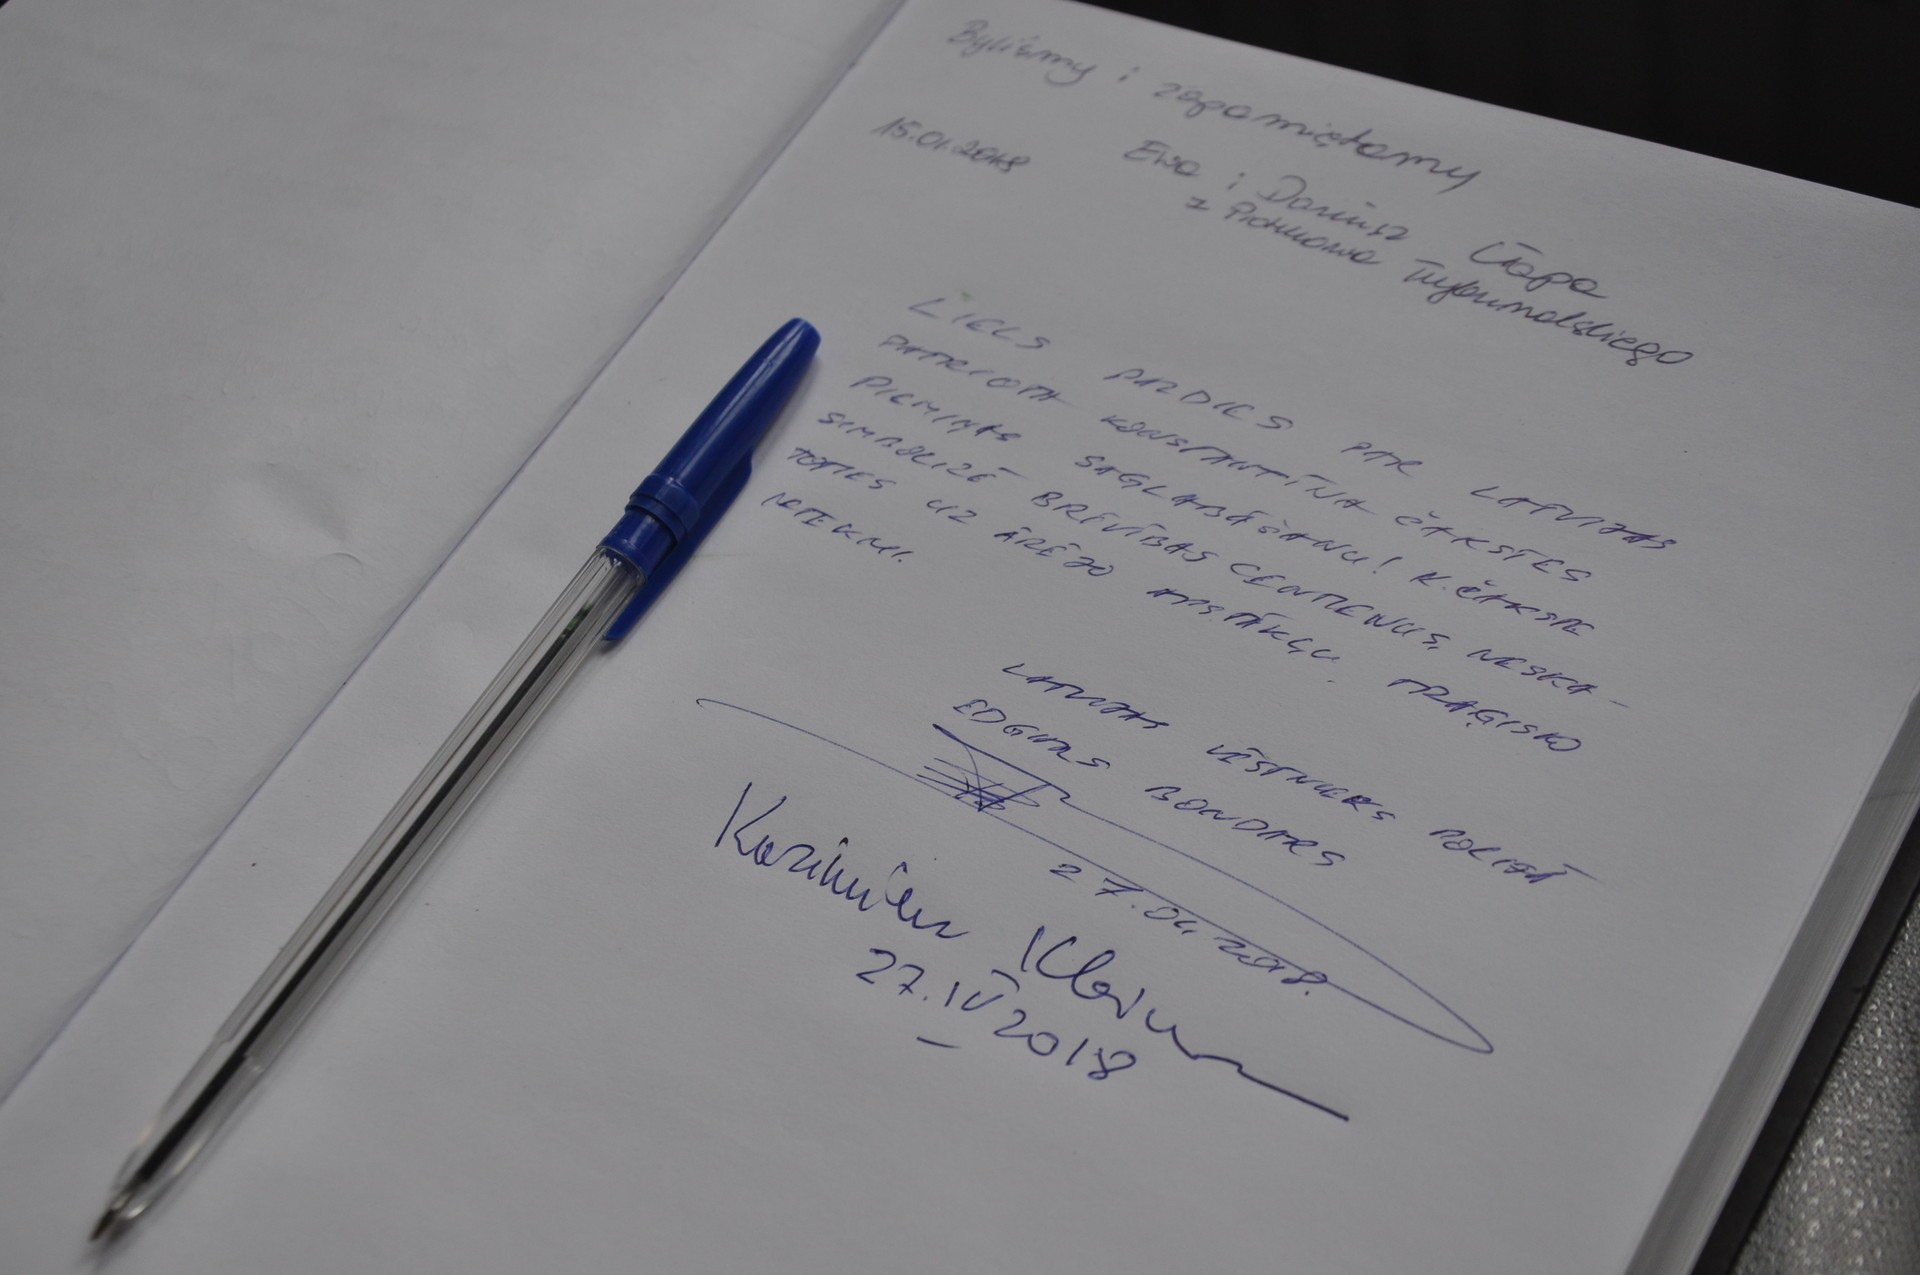 Byliśmy i zapamiętamy
15.01.2018
Ewa i Dariusz Łapa
z Piotrkowa Trybunalskiego
LIELS PALDIES PAR LATVIJAS
PATRIOTA KONSTANTĪNA ČAKSTES
PIEMIŅAS SAGLABĀŠANU! K. ČAKSTE
SIMBOLIZĒ BRĪVĪBAS CENTIENUS, NESKA-
TOTIES UZ ĀRĒJO APSTĀKĻU TRAĢISKO
IETEKMI.
LATVIJAS VĒSTNIEKS POLIJĀ
EDGARS BONDARS
27.04.2018.
Kazimierz
27.IV 2018